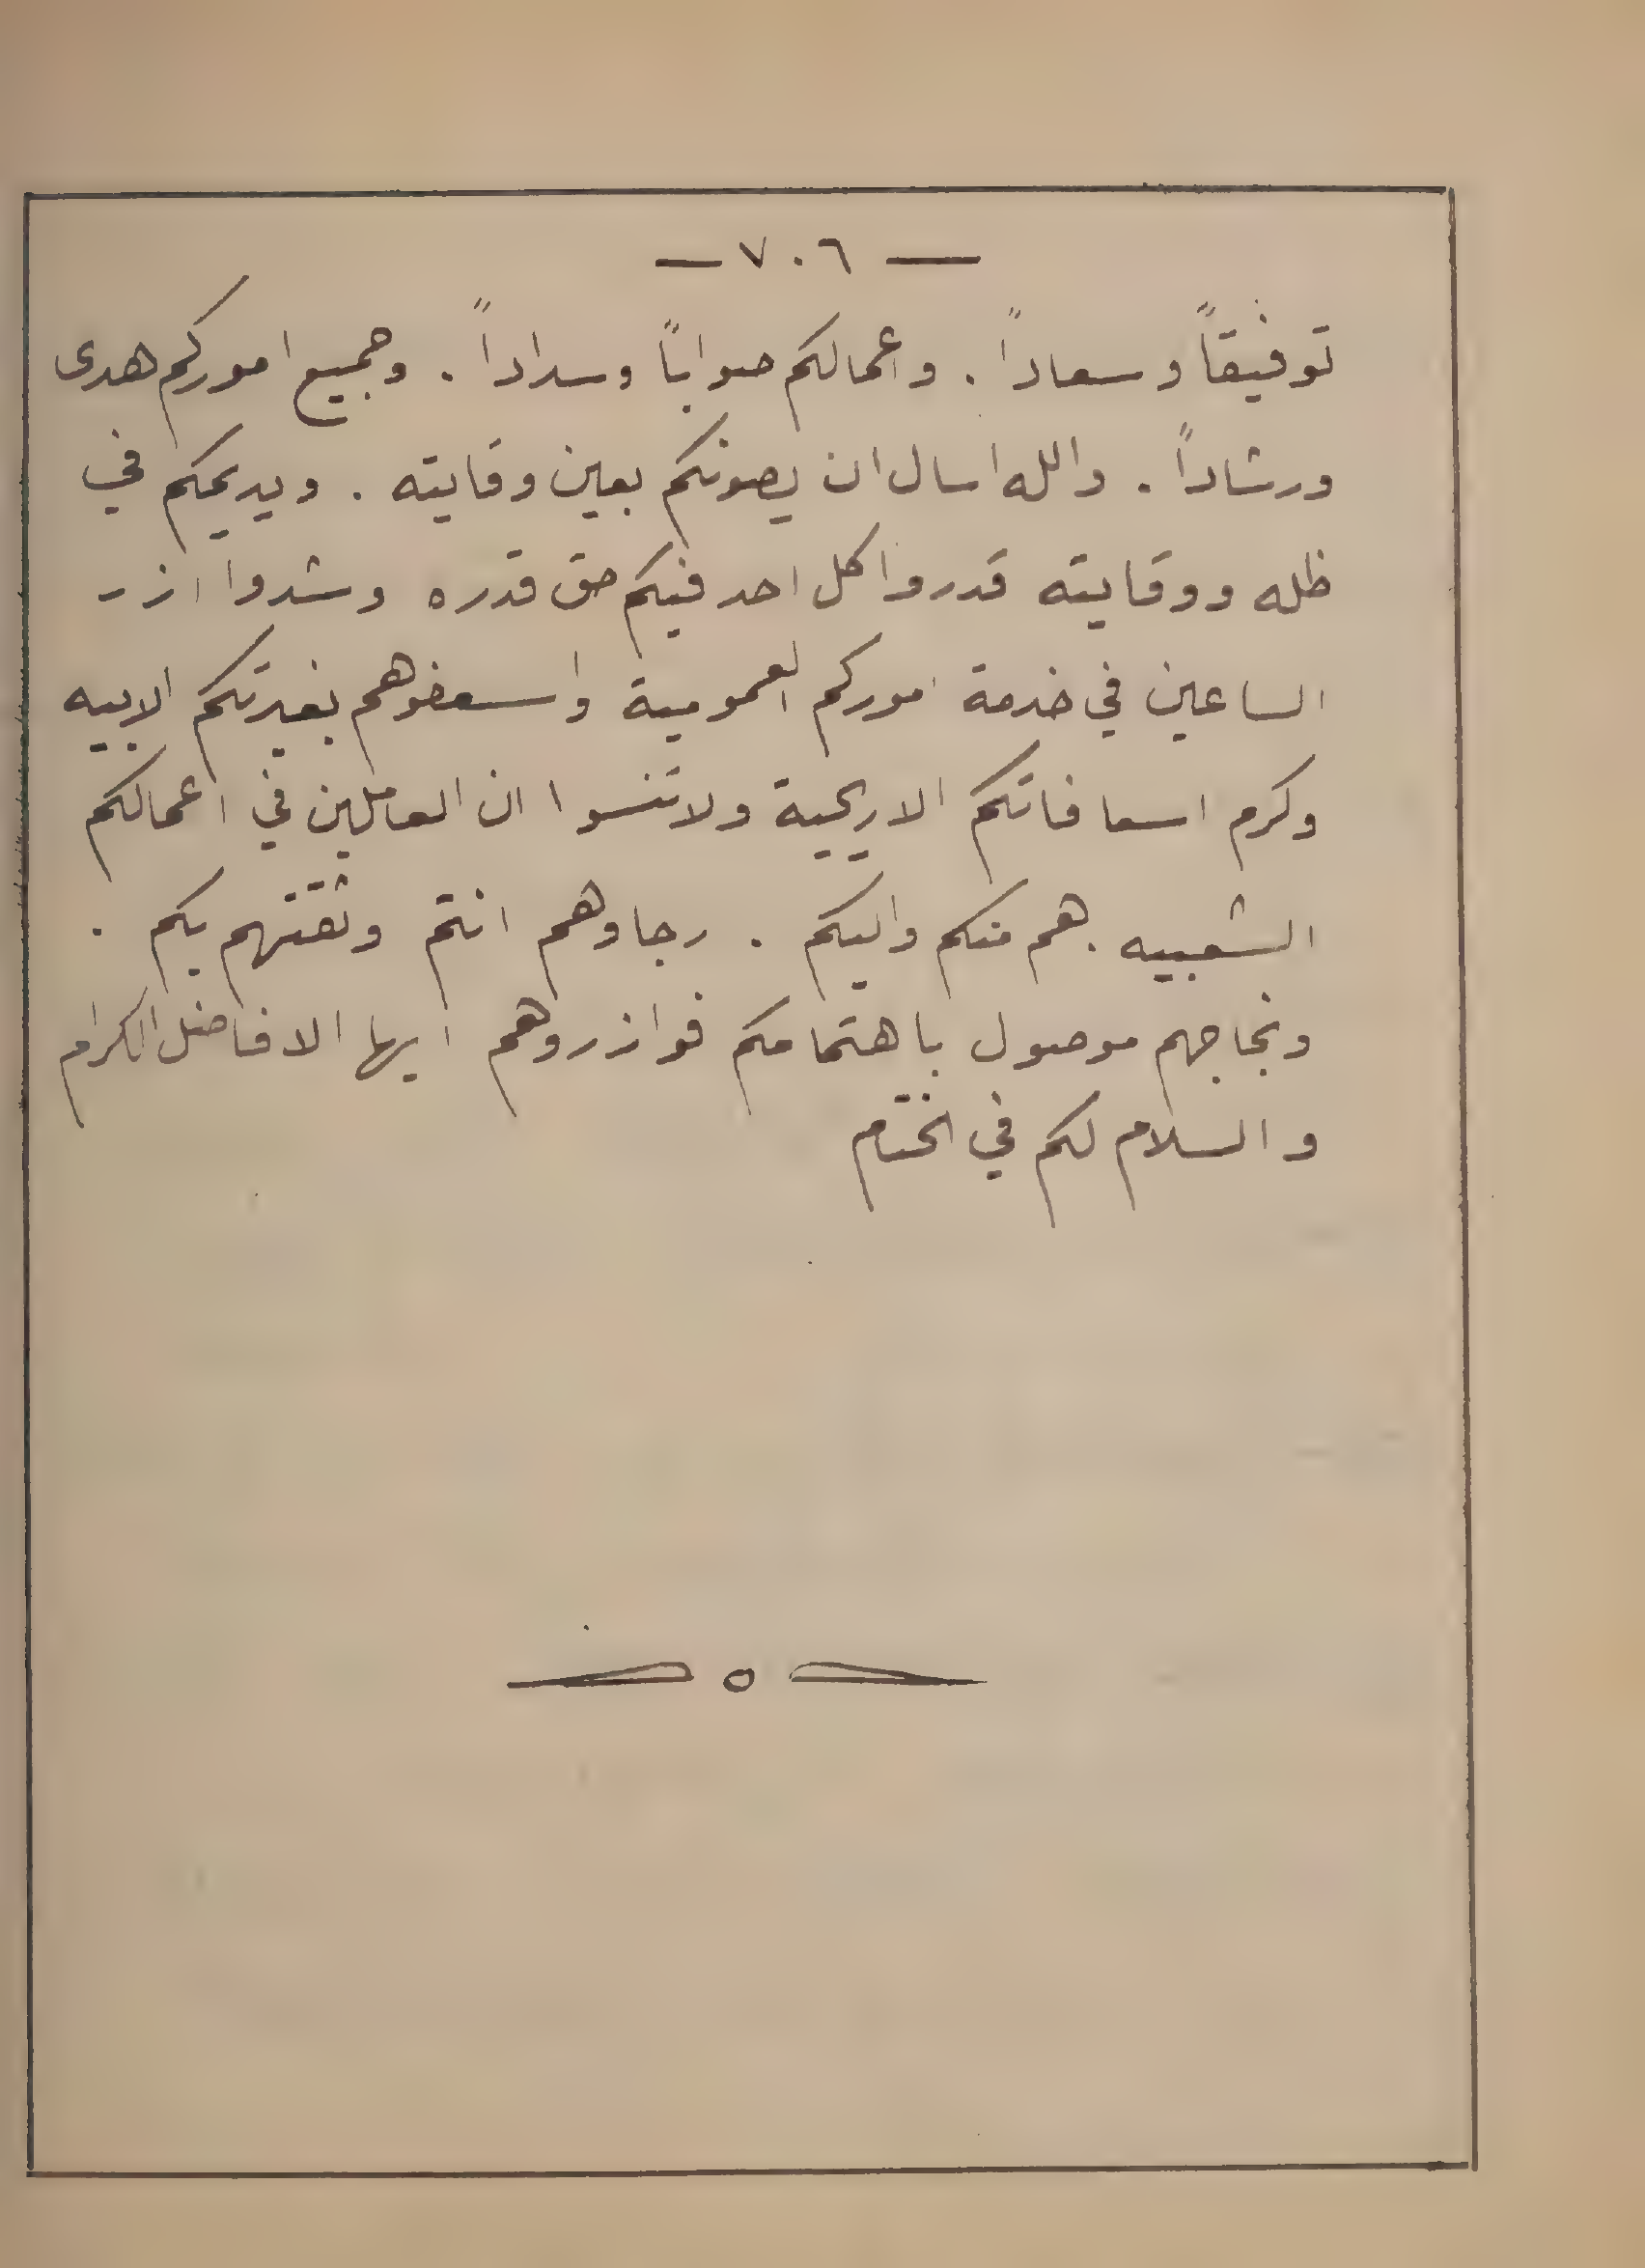 — ٧٠٦ —
توفيقاً وسعاداً . واعمالكم صواباً وسداداً . وجميع اموركم هدى
ورشاداً . والله اسال ان يصونكم بعين وقايته . ويديمكم في
ظله ووقايته قدروا كل احد فيكم حق قدره وشدوا ازر
الساعين في خدمة اموركم العمومية واسعفوهم بغيرتكم الابيه
وكرم اسعافاتكم الاريحية ولا تنسوا ان العاملين في اعمالكم
الشعبيه . هم منكم واليكم . رجاوهم انتم وثقتهم بكم .
ونجاحهم موصول باهتمامكم فوازروهم ايها الافاضل الكرام
والسلام لكم في الختام